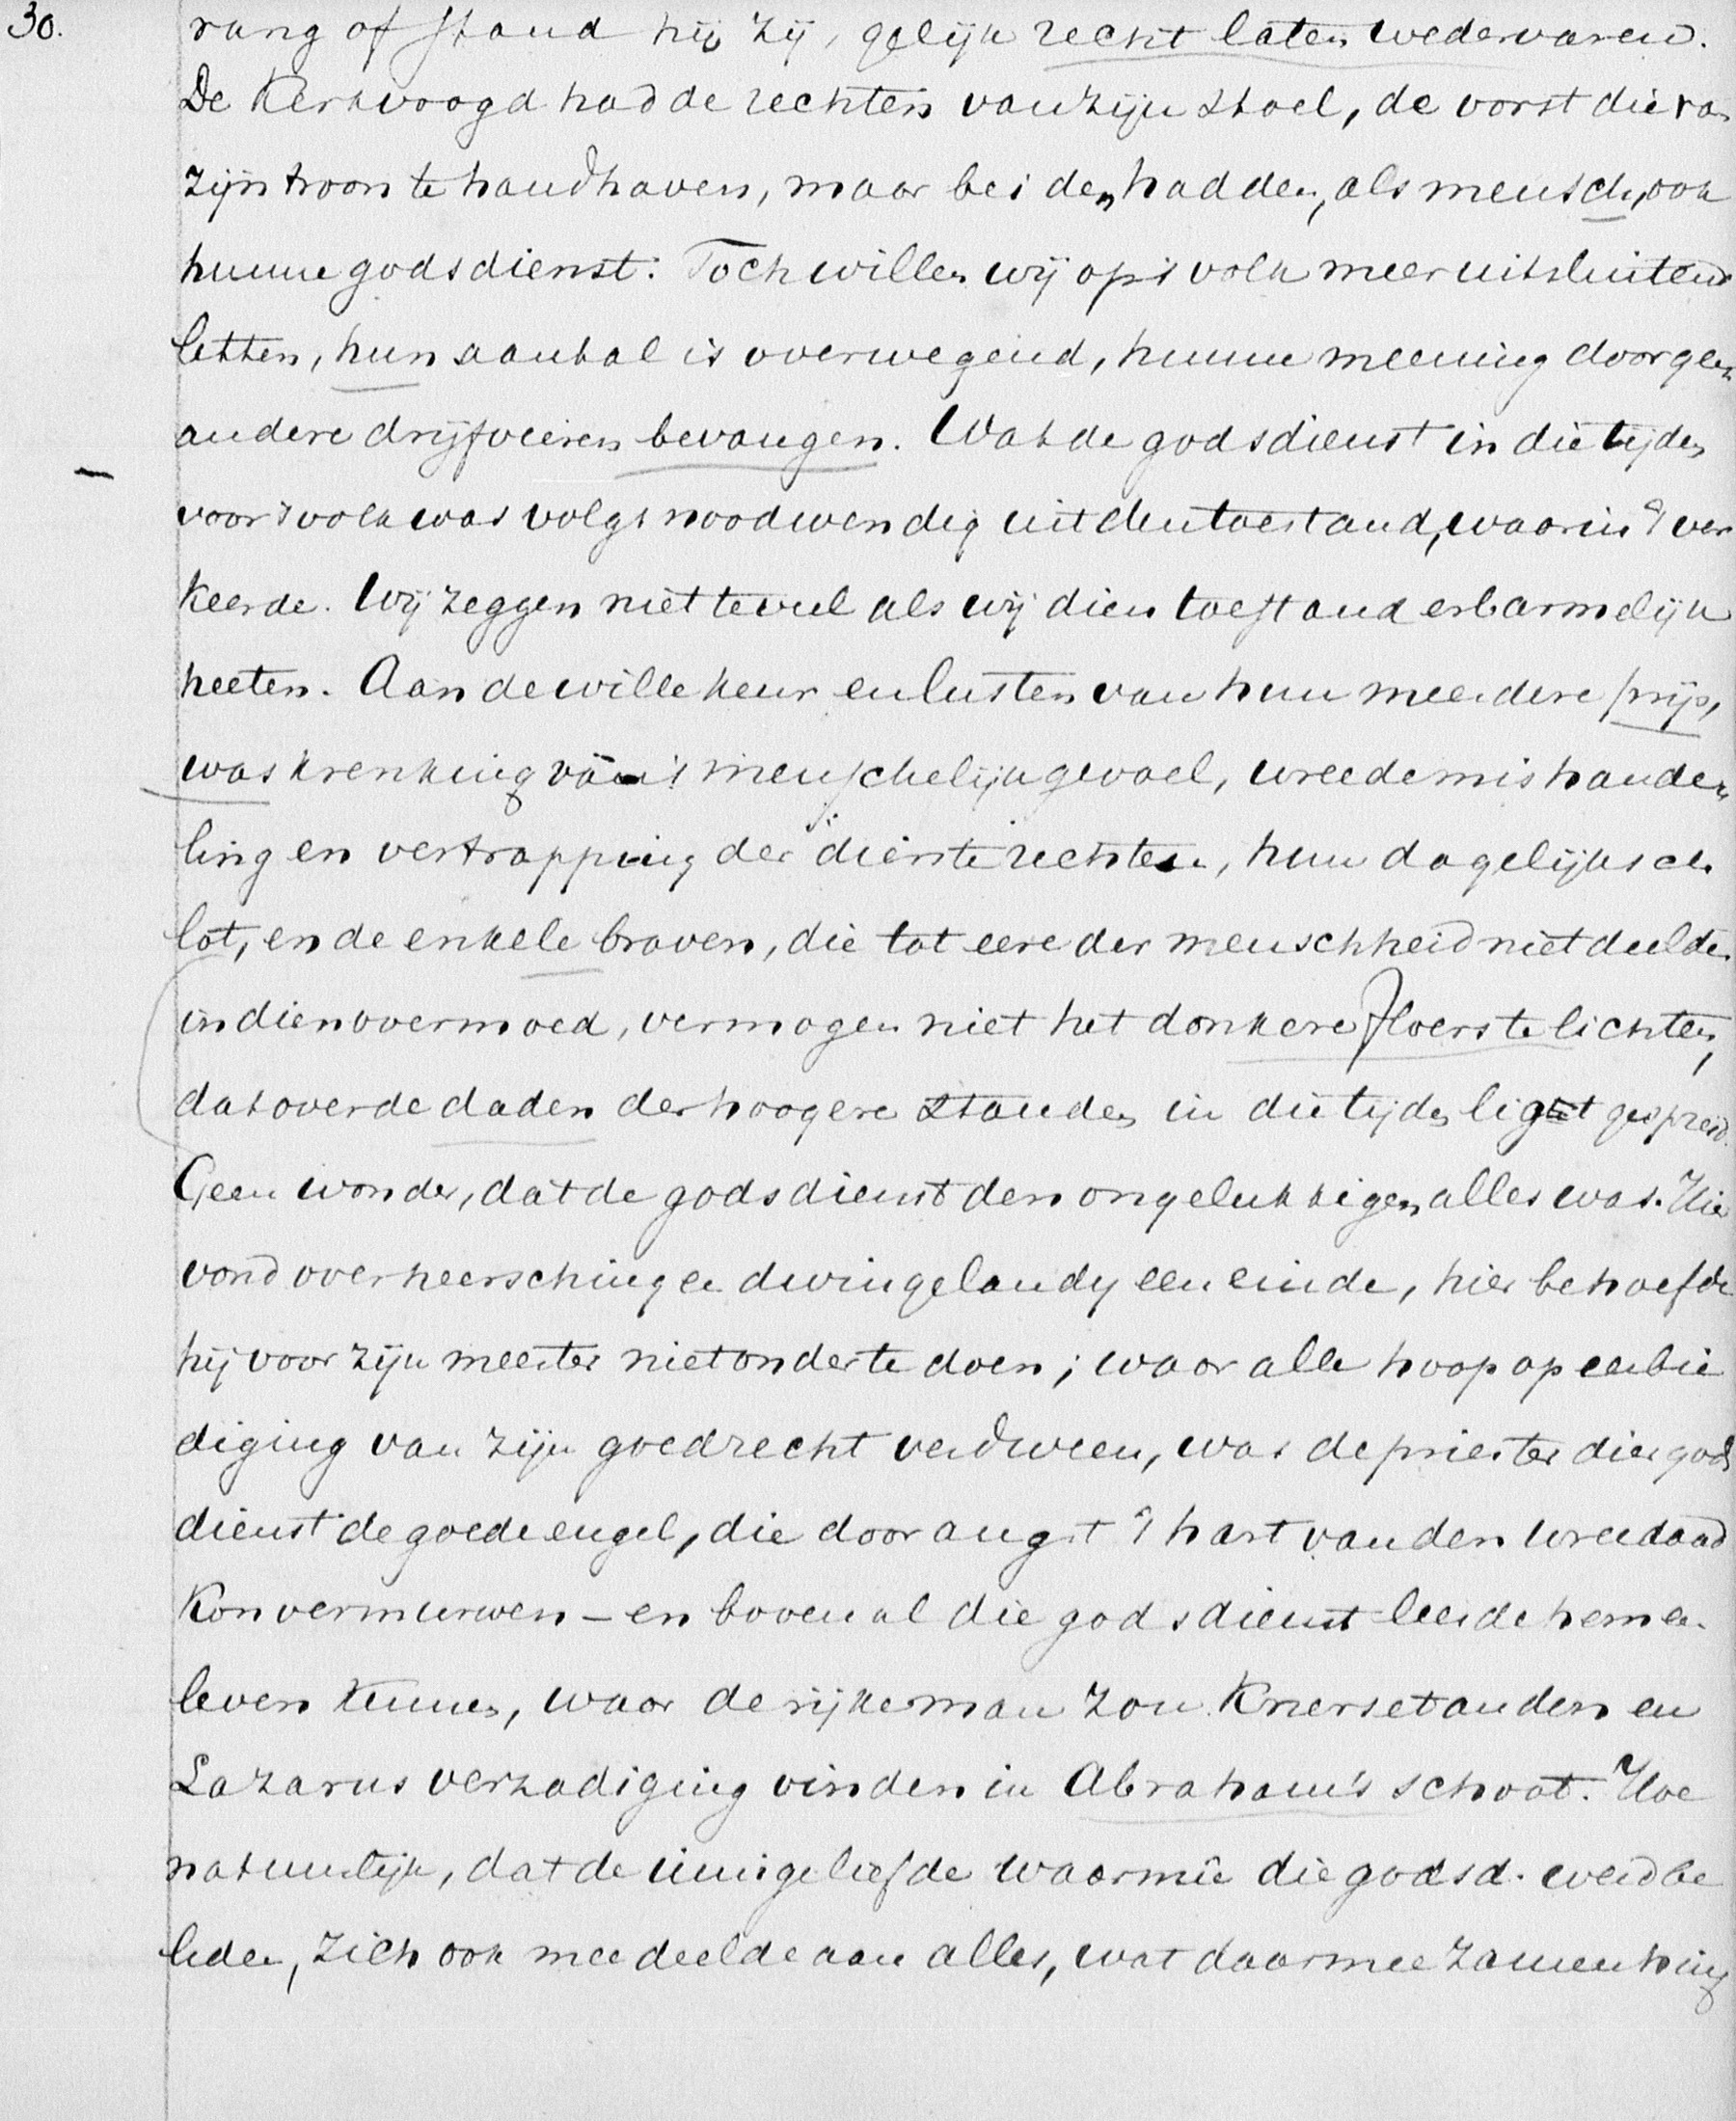 30.
rang of stand hij zij, gelijk recht laten wedervaren.
De Kerkvoogd had de rechten van zijn stoel, de vorst die van
zijn troon te handhaven, maar beiden hadden, als mensch, ook
hunne godsdienst. Toch willen wij op 't volk meer uitsluitend
letten, hun aantal is overwegend, hunne meening door geen
andere drijfveeren bevangen. Wat de godsdienst in die tijden
voor 't volk was volgt noodwendig uit den toestand, waarin 't ver
keerde. Wij zeggen niet te veel als wij dien toestand erbarmelijk
heeten. Aan de willekeur en lusten van hun meerdere prijs,
was krenking van 't menschelijk gevoel, wreede mishande
ling en vertrapping der dierste rechten, hun dagelijksch
lot, en de enkele braven, die tot eere der menschheid niet deelden
in dien overmoed, vermogen niet het donkere floers te lichten,
dat over de daden der hoogere standen in die tijden ligt gespreid.
Geen wonder, dat de godsdienst den ongelukkigen alles was. Hier
vond overheersching en dwingelandij een einde, hier behoefde
hij voor zijn meester niet onder te doen; waar alle hoop op eerbie
diging van zijn goed recht verdween, was de priester dier gods
dienst de goede engel, die door angst 't hart van den wreedaard
Kon vermurwen – en bovenal die godsdienst leerde hem een
leven kennen, waar de rijke man zou Knersetanden en
Lazarus verzadiging vinden in Abraham's schoot. Hoe
natuurlijk, dat de innige liefde waarmeê die godsd. werd be
leden, zich ook meedeelde aan alles, wat daarmee zamenhing